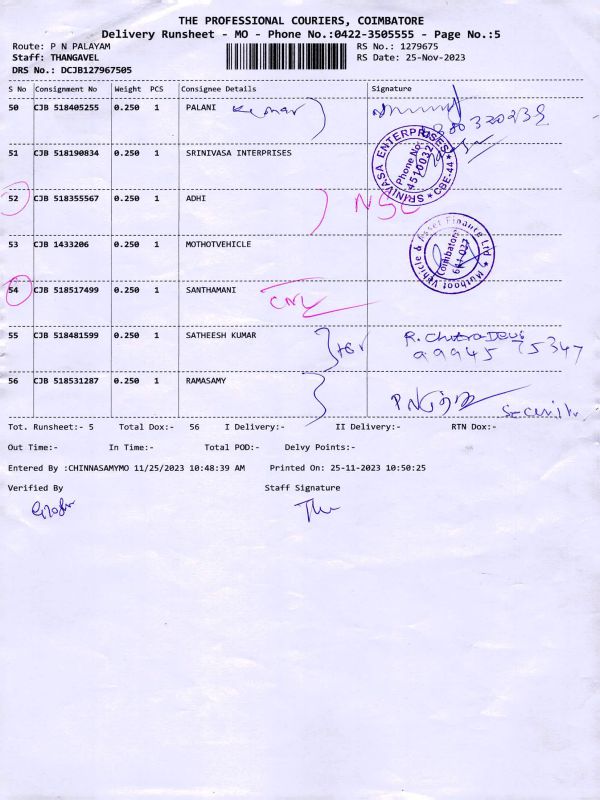 THE PROFESSIONAL COURIERS, COIMBATORE
Delivery Runsheet - MO - Phone No.:0422-3505555 - Page No.:5
Route: P N PALAYAM
RS No.: 1279675
Staff: THANGAVEL
RS Date: 25-Nov-2023
DRS No.: DCJB127967505
S No Consignment No Weight PCS Consignee Details Signature
50 CJB 518405255 0.250 1 PALANI Kumar
51 CJB 518190834 0.250 1 SRINIVASA INTERPRISES
SRINIVASA ENTERPRISES * CBE-44 *
Phone No
4510032
52 CJB 518355567 0.250 1 ADHI NSC
53 CJB 1433206 0.250 1 MOTHOTVEHICLE
Muthoot Vehicle & Asset Finance Ltd
Coimbatore
54 CJB 518517499 0.250 1 SANTHAMANI
55 CJB 518481599 0.250 1 SATHEESH KUMAR R. Chitra Devi
99945 75347
56 CJB 518531287 0.250 1 RAMASAMY
Security
Tot. Runsheet:- 5 Total Dox:- 56 I Delivery:- II Delivery:- RTN Dox:-
Out Time:- In Time:- Total POD:- Delvy Points:-
Entered By :CHINNASAMYMO 11/25/2023 10:48:39 AM Printed On: 25-11-2023 10:50:25
Verified By Staff Signature